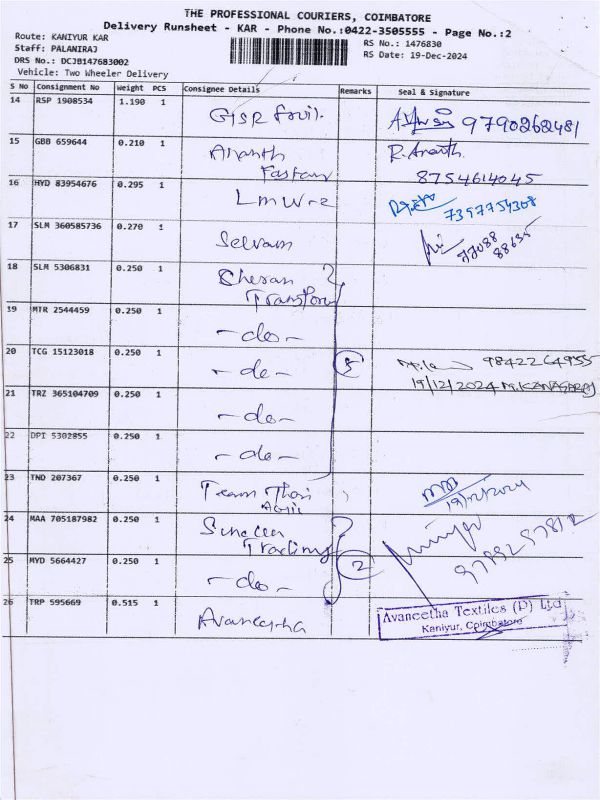 THE PROFESSIONAL COURIERS, COIMBATORE
Delivery Runsheet - KAR - Phone No.:0422-3505555 - Page No.:2
Route: KANIYUR KAR
Staff: PALANIRAJ
DRS No.: DCJB147683002
Vehicle: Two Wheeler Delivery
RS No.: 1476830
RS Date: 19-Dec-2024
S No Consignment No Weight PCS Consignee Details Remarks Seal & Signature
14 RSP 1908534 1.190 1 9790262481
15 GBB 659644 0.210 1 Ananth R. Ananth
8754614045
16 HYD 83954676 0.295 1 7397754308
17 SLM 360585736 0.270 1 Selvam 77088
88635
18 SLM 5306831 0.250 1 Cheran
19 MTR 2544459 0.250 1 -do-
20 TCG 15123018 0.250 1 -do- 5 9842264955
19/12/2024 M.KANAGARAJ
21 TRZ 365104709 0.250 1 -do-
22 DPI 5302855 0.250 1 -do-
23 TND 207367 0.250 1 Team Thai 19/12/2024
24 MAA 705187982 0.250 1 Trading
25 MYD 5664427 0.250 1 -do- 2
26 TRP 595669 0.515 1 Avaneetha Avaneetha Textiles (P) Ltd
Kaniyur, Coimbatore